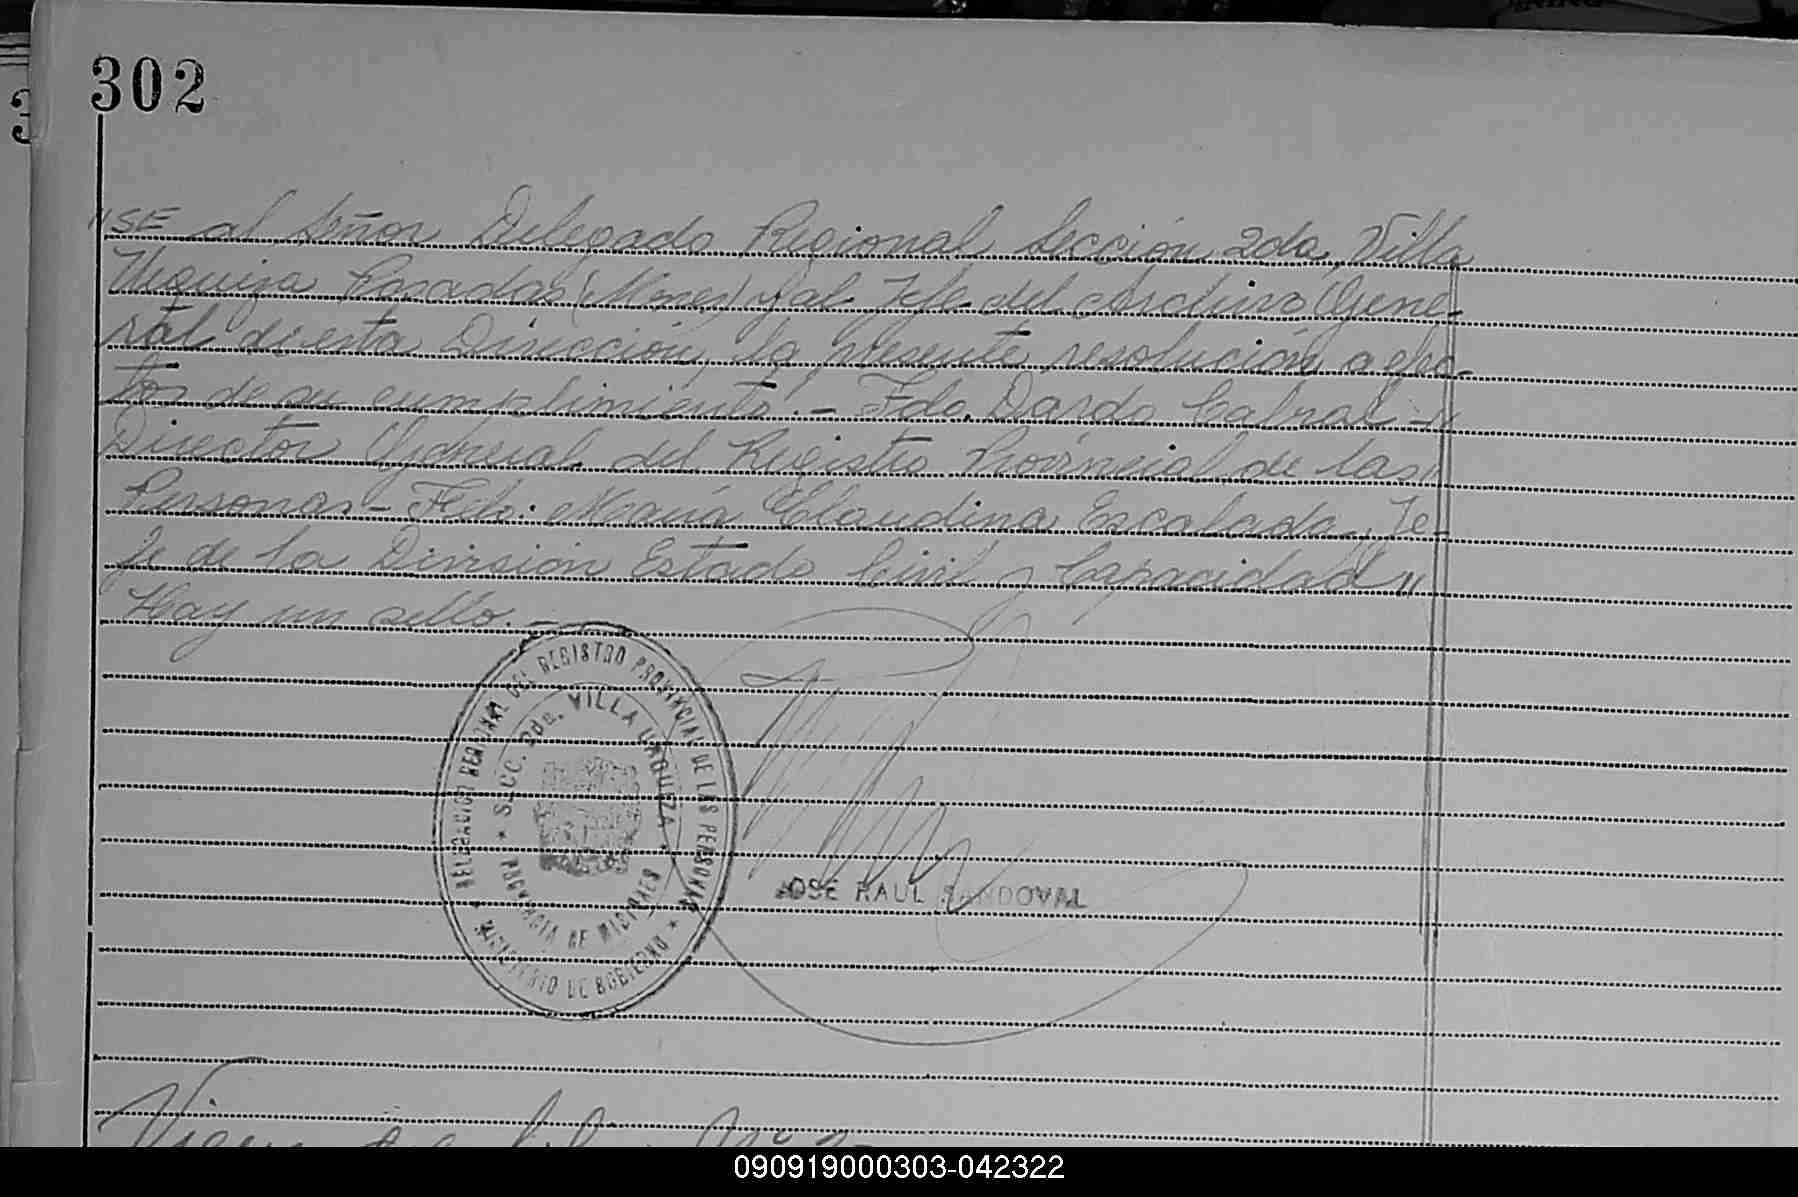 302
"SE al Señor Delegado Regional Sección 2da, Villa
Urquiza Posadas (Mnes) y al Jefe del Archivo Gene-
ral de esta Dirección, la presente resolución a efec-
tos de su cumplimiento.- Fdo. Dardo Cabral -"
Director General del Registro Provincial de las"
Personas - Fdo: María Claudina Escalada, Je-
fe de la División Estado Civil y Capacidad"
Hay un sello.-
DELEGACION REGIONAL DEL REGISTRO PROVINCIAL DE LAS PERSONAS
★ MINISTERIO DE GOBIERNO ★
★ SECC. 2da. VILLA URQUIZA ★
PROVINCIA DE MISIONES
JOSE RAUL SANDOVAL
090919000303-042322